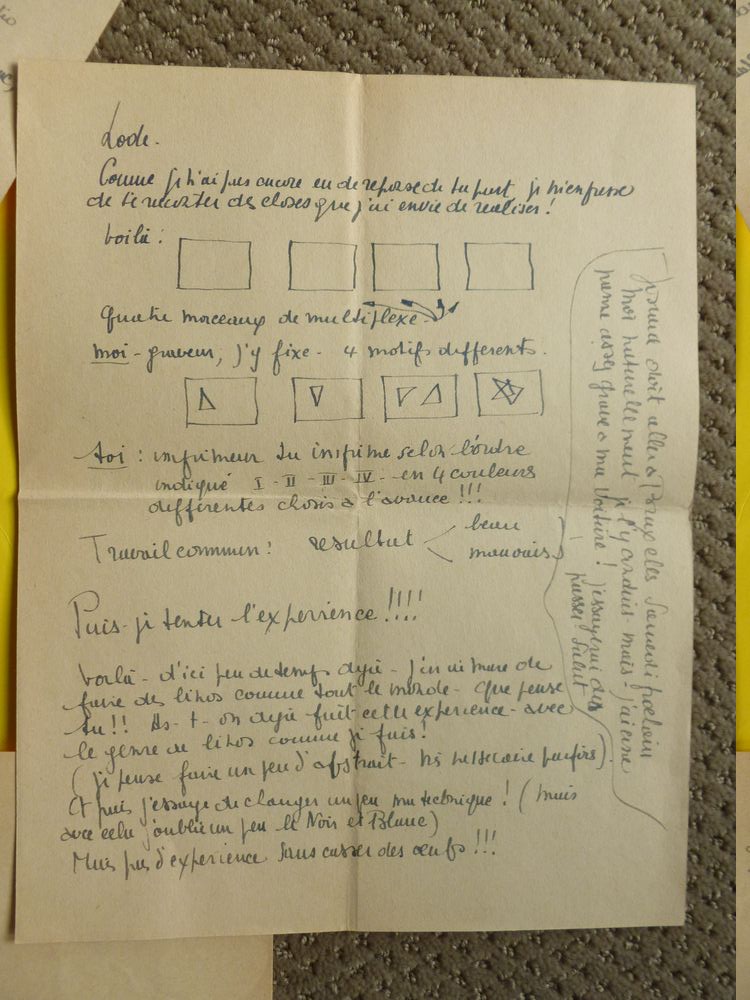 Lode.
Comme je n'ai pas encore eu de reponse de ta part, je m'empresse
de te raconter des choses que j'ai envie de realiser!
Voilà:
Quatre morceaux de multiplexe.
moi - graveur, j'y fixe - 4 motifs differents.
toi : imprimeur tu imprime selon l'ordre
indiqué I - II - III - IV - en 4 couleurs
differentes choisis a l'avance!!!
Travail commun: resultat beau
mauvais
Puis-je tenter l'experience!!!!
Voilà - d'ici peu de temps déjà - j'en ai mare de
faire des linos comme tout le monde - que pense
tu!! As-t-on déjà fait cette experience - avec
le genre de linos comme je fais!
(je pense faire un peu d'abstrait - parfois).
Et puis j'essaye de changer un peu ma technique! (mais
avec cela j'oublie un peu le Noir et Blanc)
Mais pas d'experience sans casser des œufs!!!
doit aller a Bruxelles Samedi prochain
Moi naturellement je l'y conduis mais - j'ai une
panne assez grave a ma voiture! j'essayerai de
passer! Salut